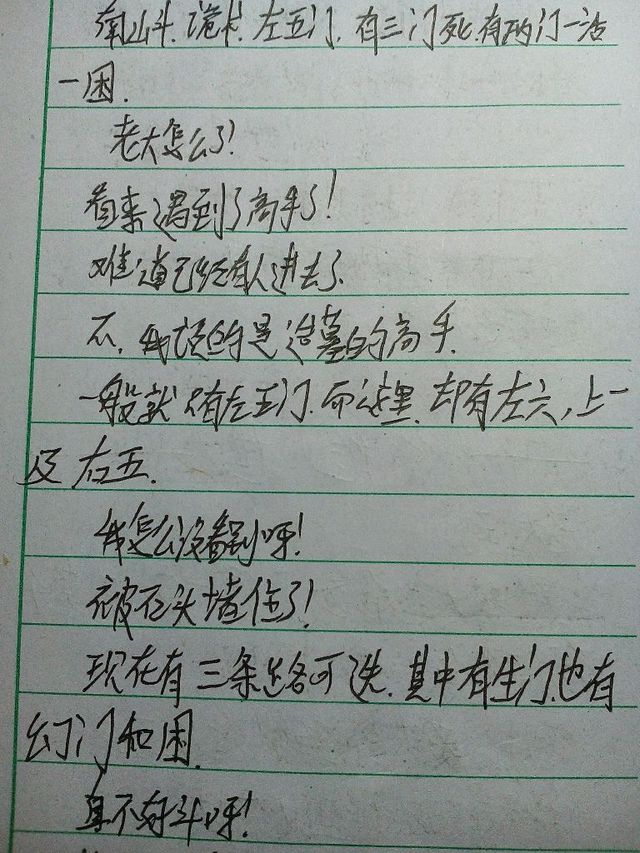 南山斗.诡术.左五门.有三门死.有两门一活
一困.
老大怎么了!
看来遇到了高手了!
难道已经有人进去了.
不.我说的是造墓的高手.
一般就只有左五门.而这里.却有左六,上一
及右五.
我怎么没看到呀!
被石头堵住了!
现在有三条路可选.其中有生门.也有
幻门和困.
真不好斗呀!